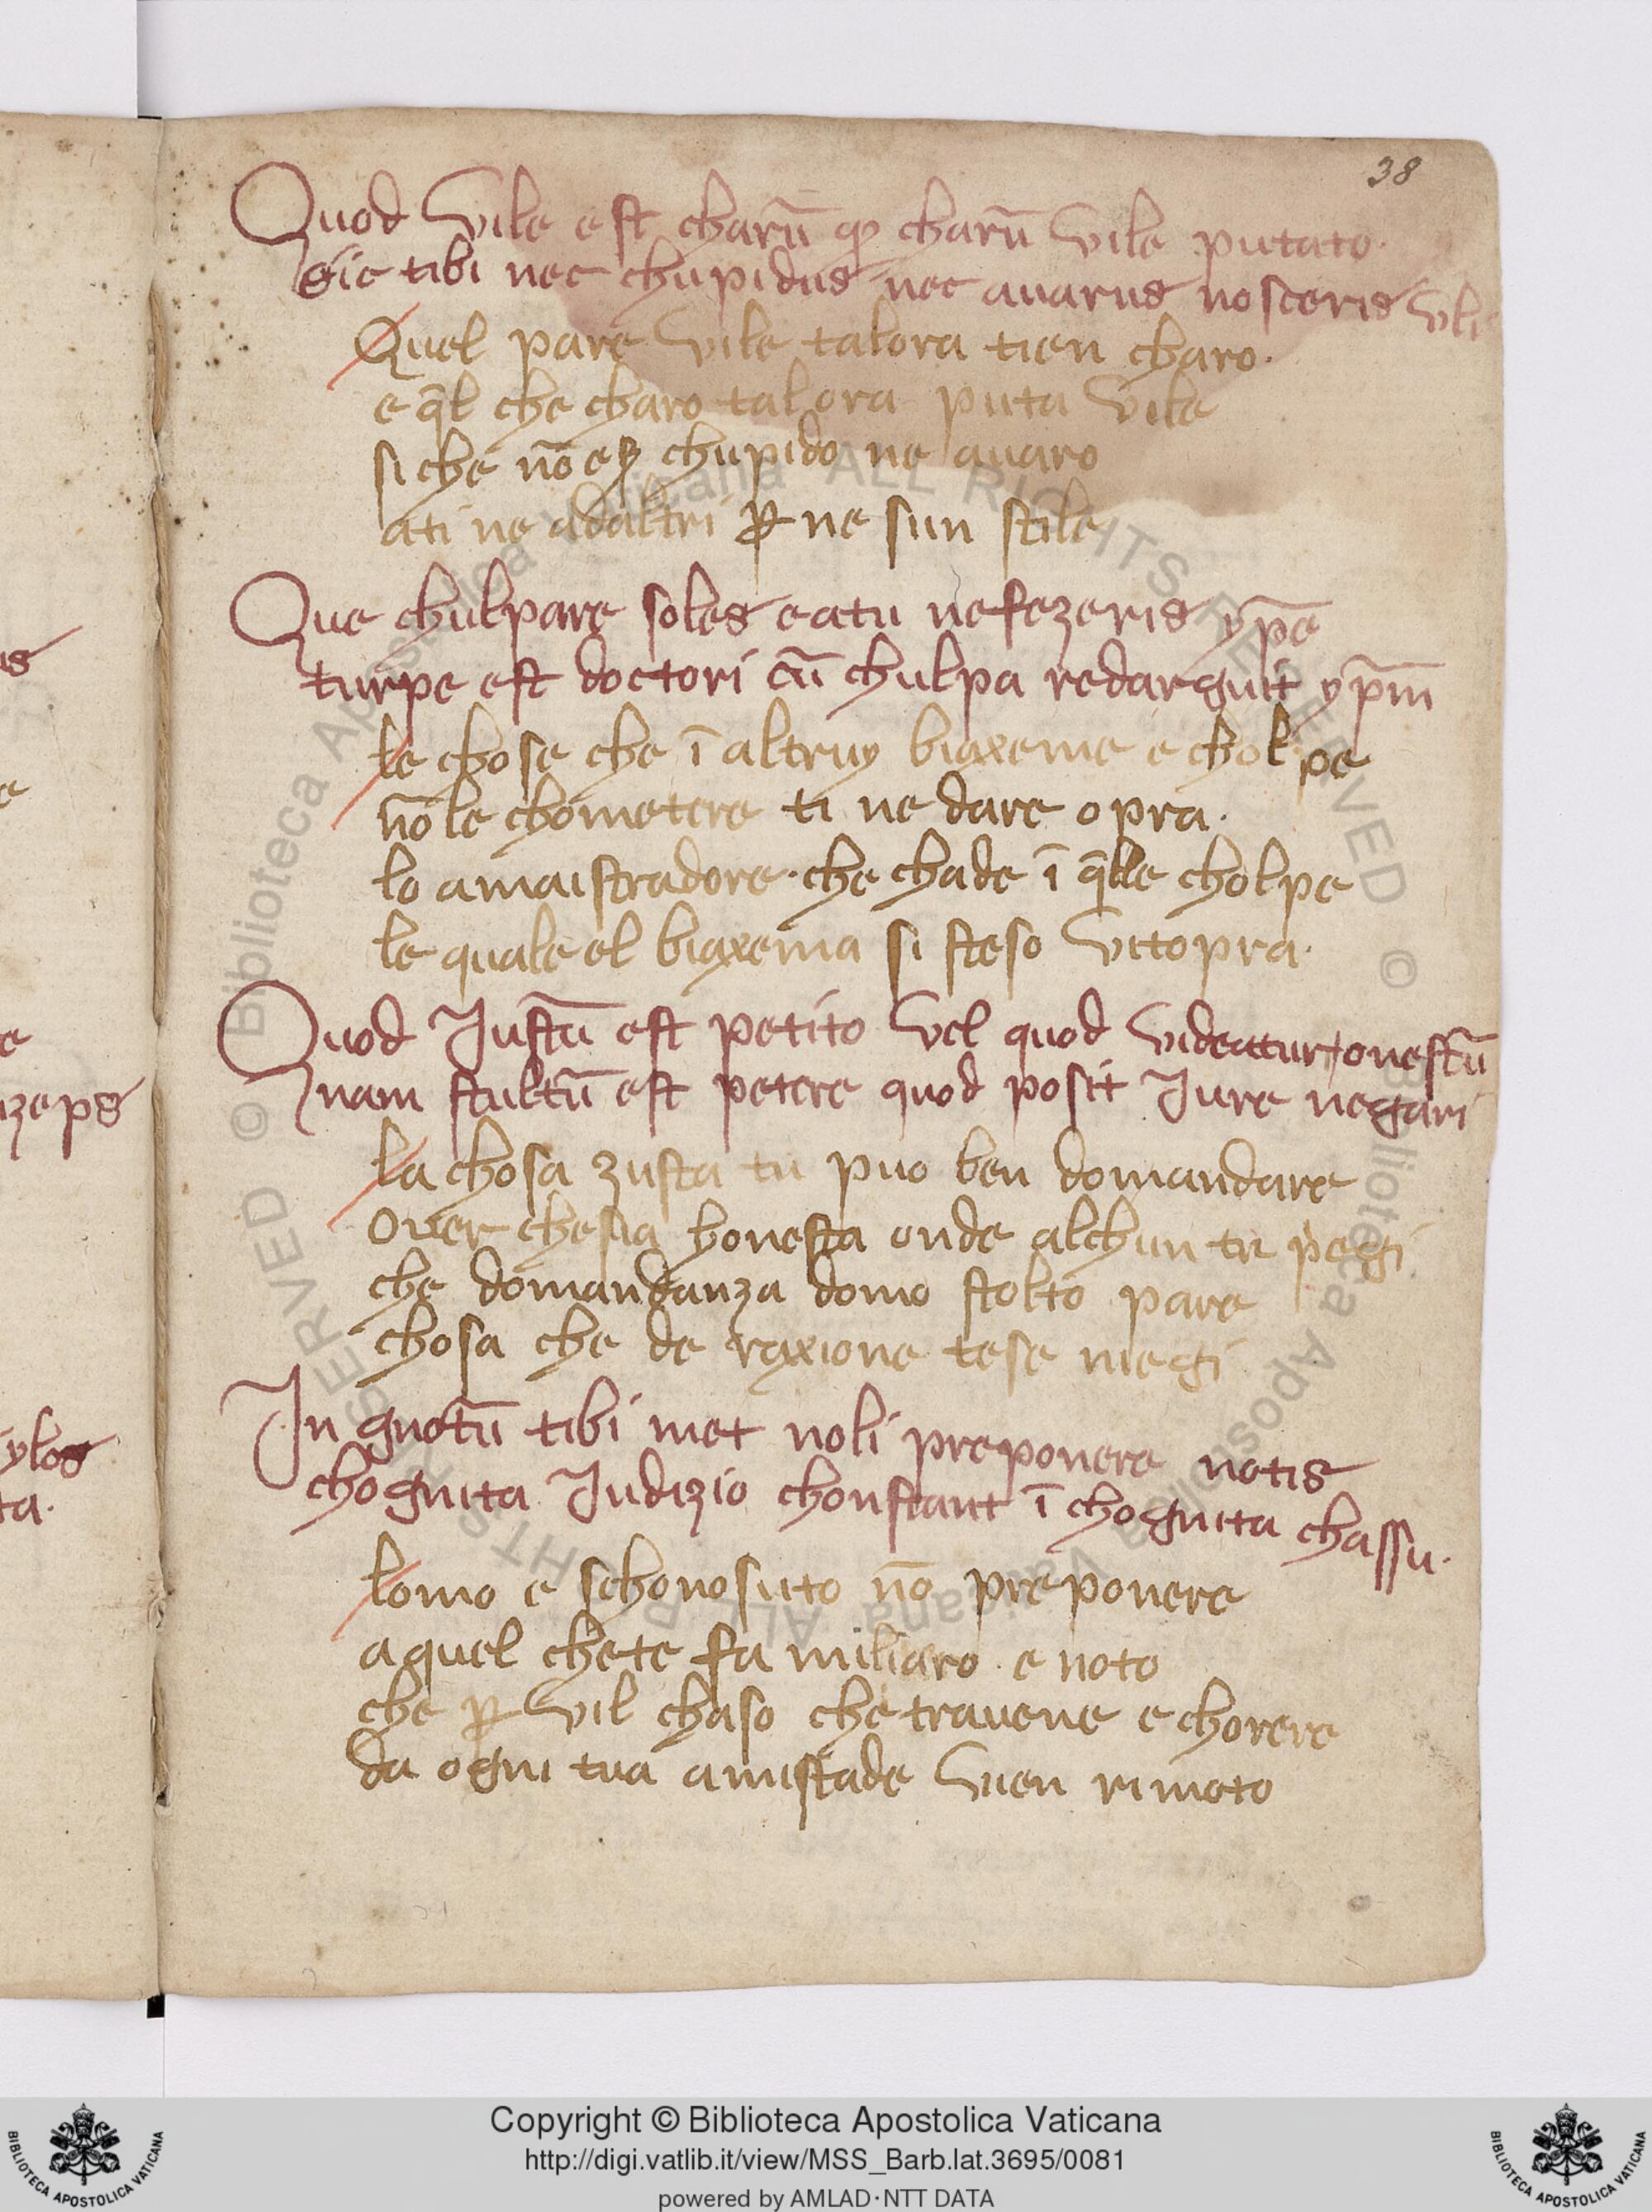 38
Quod vile est charū qđ charū vile putato.
sic tibi nec chupidus nec auarus nosceris vli
Quel pare vile talora tien charo.
e q̄l che charo talora puta vile
si che nō eʒ chupido ne auaro
ati ne adaltri ꝑ ne sun stile
Que chulpare soles eatu nefezeris ypē
turpe est doctori cū chulpa redarguit yp̄m
le chose che ī altruy biaxeme e cholpe
nō le chometere ti ne dare opra.
lo amaistradore. che chade ī q̄lle cholpe
le quale el biaxema si steso vitopra.
Quod Justū est petito vel quod videatur onestū
nam stultū est petere quod posit Jure negari
la chosa zusta tu puo ben domandare
ouer che sia honesta onde alchun tu pregi
che domandanza domo stolto pare
chosa che de raxione tese niegi
Ingnotū tibi met noli preponere notis
chognita Judizio chonstant ī chognita chassu.
lomo e schonosuto nō preponere
aquel chete familiaro e noto
che ꝑ vil chaso che trauene e chorere
da ogni tua amistade vien rimoto
is
e
e
izeps
ylos
ta.
© Biblioteca Apostolica Vaticana ALL RIGHTS RESERVED © Biblioteca Apostolica Vaticana ALL RIGHTS RESERVED
Copyright © Biblioteca Apostolica Vaticana
http://digi.vatlib.it/view/MSS_Barb.lat.3695/0081
powered by AMLAD·NTT DATA
BIBLIOTECA APOSTOLICA VATICANA
BIBLIOTECA APOSTOLICA VATICANA